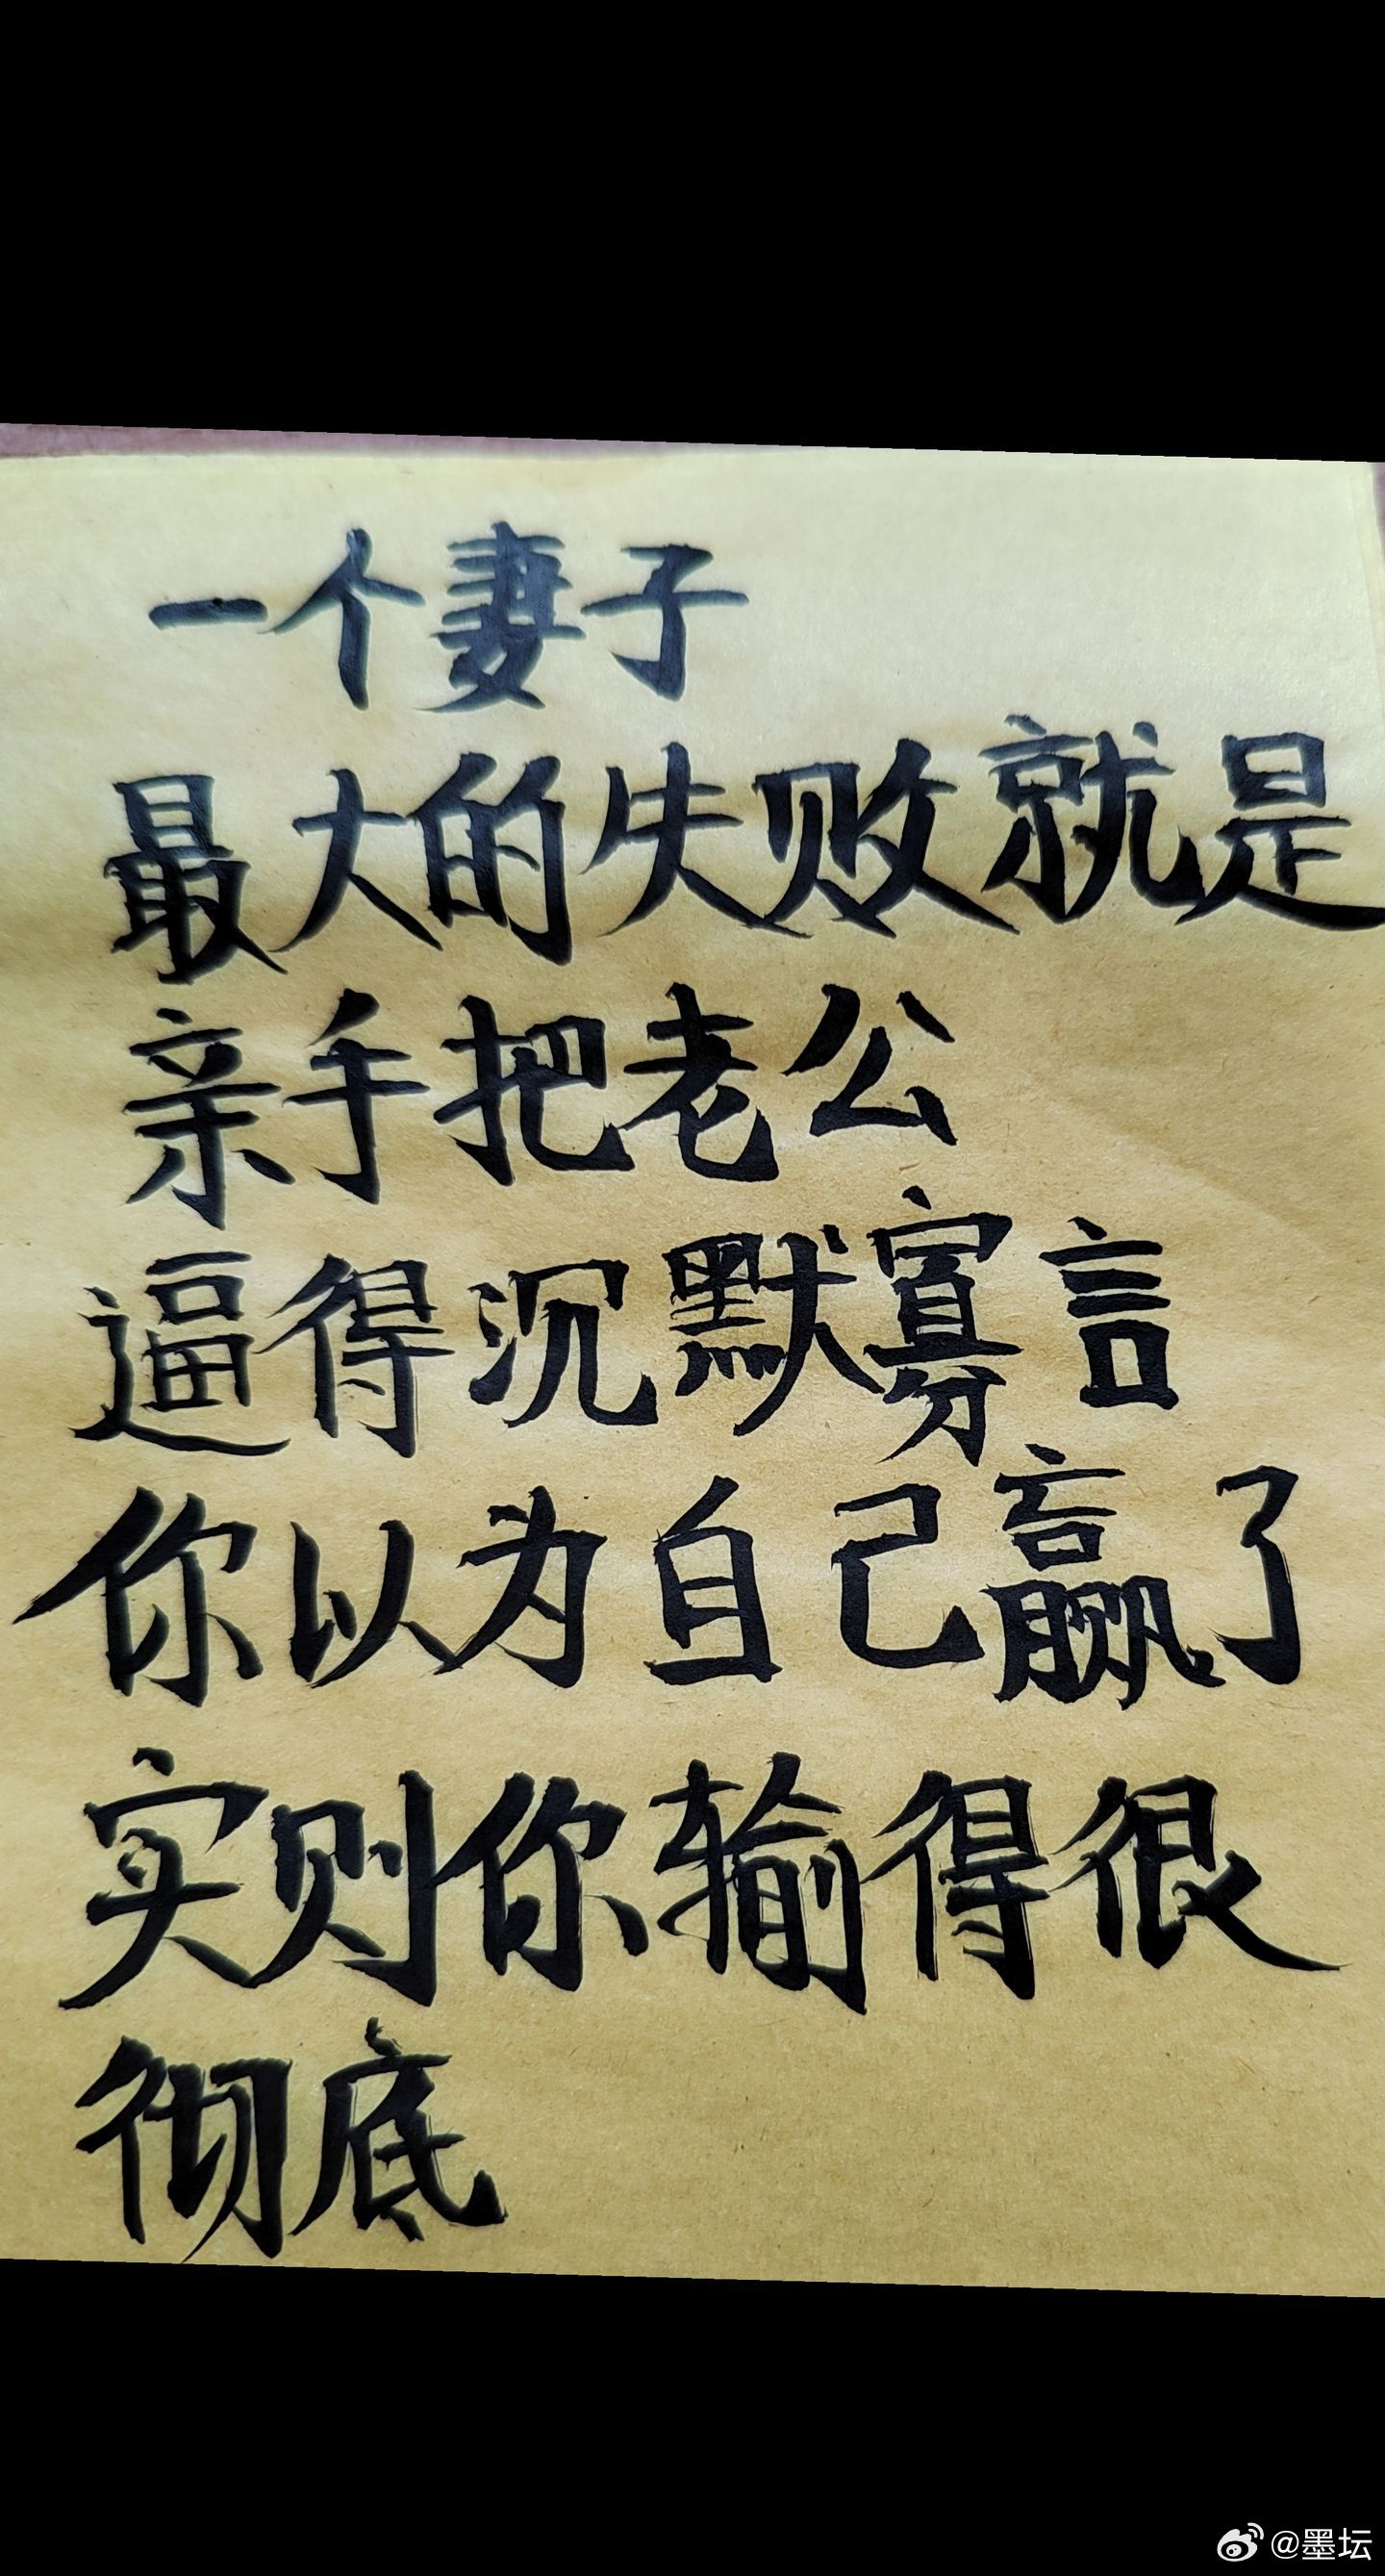 一个妻子
最大的失败就是
亲手把老公
逼得沉默寡言
你以为自己赢了
实则你输得很
彻底
@墨坛